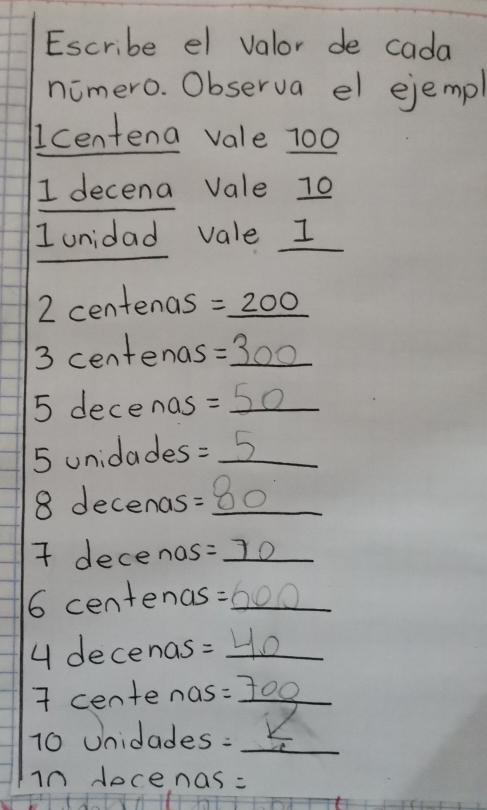 Escribe el valor de cada
número. Observa el ejempl
1 centena vale 100
1 decena vale 10
1 unidad vale 1
2 centenas = 200
3 centenas = 300
5 decenas = 50
5 unidades = 5
8 decenas = 80
7 decenas = 70
6 centenas = 600
4 decenas = 40
7 centenas = 700
10 unidades =
10 decenas =